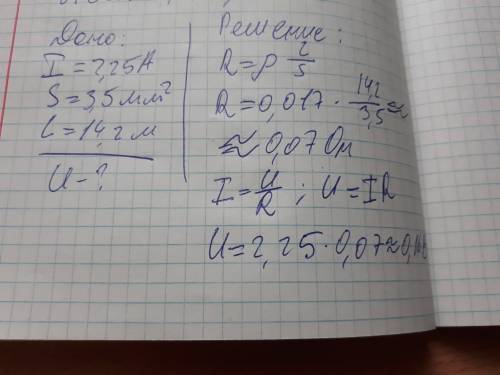 Дано:
I = 2,25А
S = 3,5 мм²
l = 14,2 м
U - ?
Решение:
R = ρ l/S
R = 0,017 · 14,2/3,5 ≈
≈ 0,07 Ом
I = U/R ; U = IR
U = 2,25 · 0,07 ≈